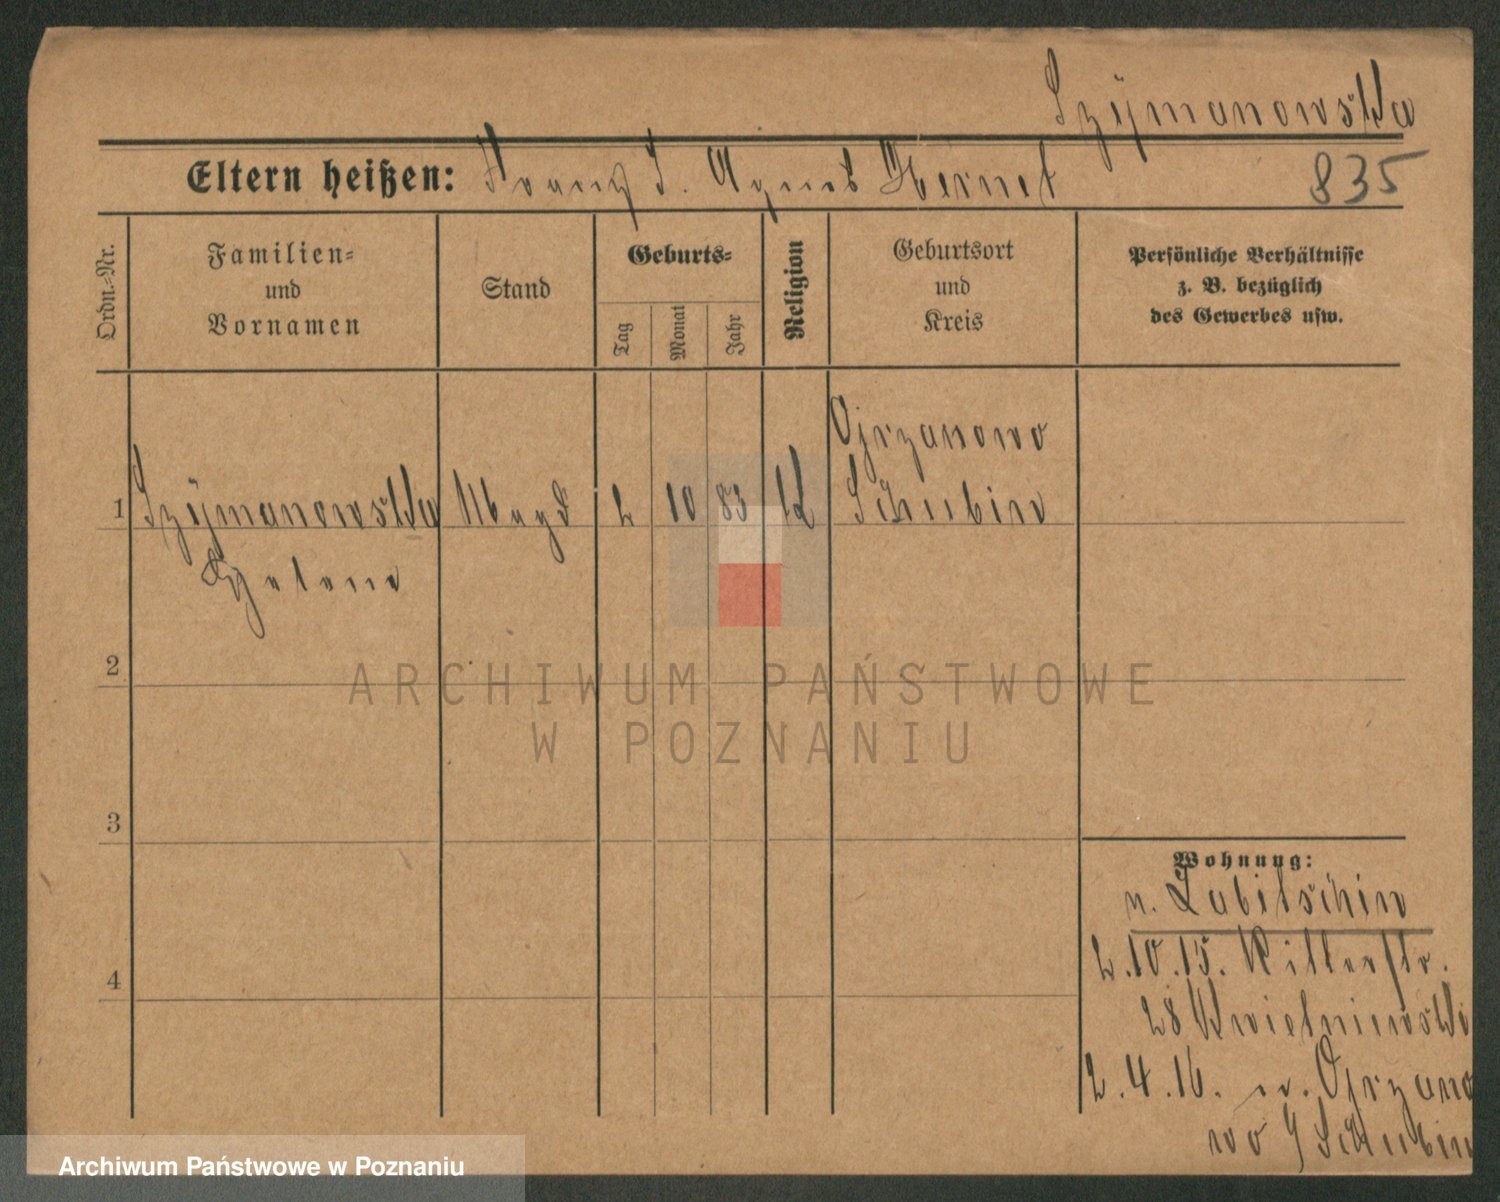 Szymanowska
Eltern heißen: Franz S. Agnes Hernet
835
Ordn.-Nr.
Familien-
und
Vornamen
Stand
Geburts-
Tag
Monat
Jahr
Religion
Geburtsort
und
Kreis
Persönliche Verhältnisse
z. B. bezüglich
des Gewerbes usw.
1 Szymanowska Magd 2 10 83 k
Ojrzanowo
Schubin
Helene
2
3
4
ARCHIWUM PAŃSTWOWE
W POZNANIU
Wohnung:
n. Labitschin
2.10.15. Ritterstr.
28 Kwietniewski
2.4.16. n. Ojrzano
wo Schubin
Archiwum Państwowe w Poznaniu